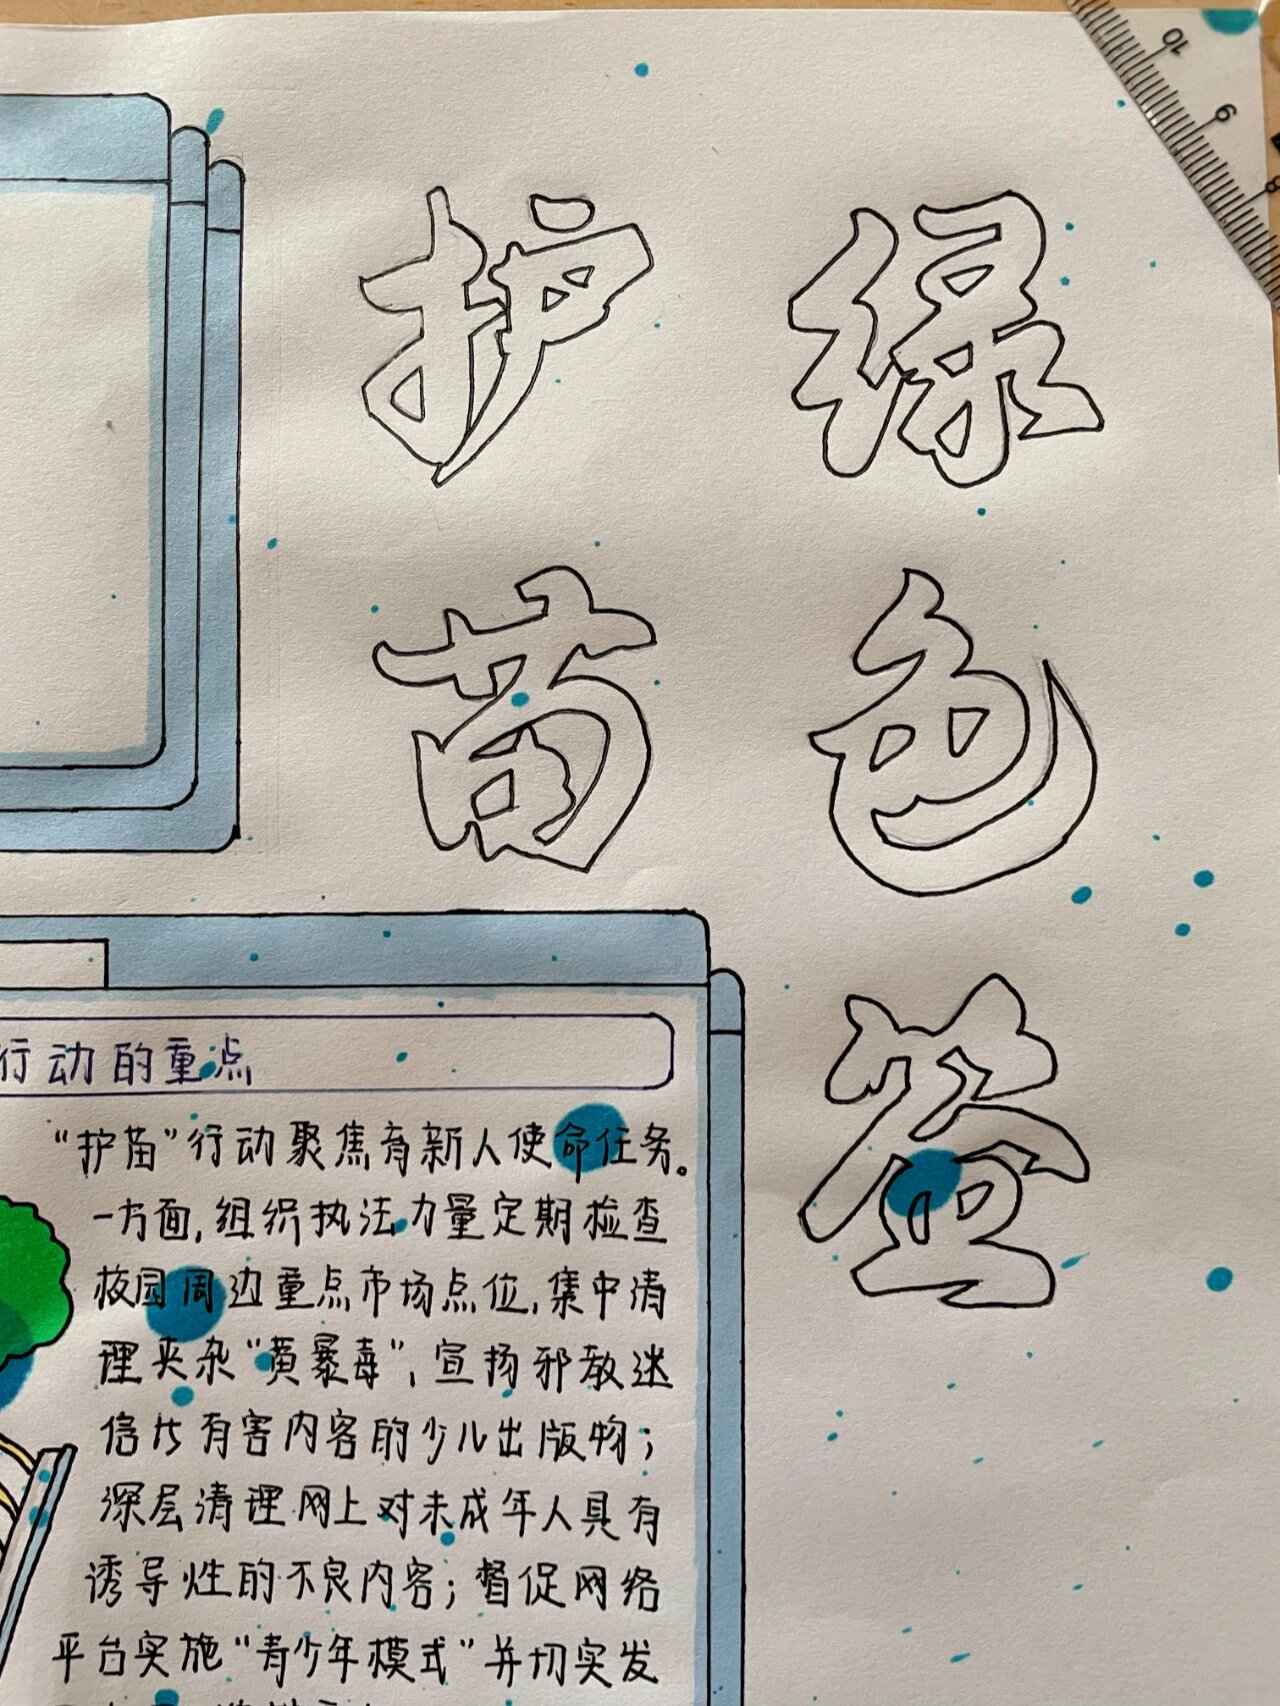 10
9
8
护 绿
苗 色
签
行动的重点
“护苗”行动聚焦育新人使命任务。
一方面,组织执法力量定期检查
校园周边重点市场点位,集中清
理夹杂“黄暴毒”,宣扬邪教迷
信片有害内容的少儿出版物;
深层清理网上对未成年人具有
诱导性的不良内容;督促网络
平台实施“青少年模式”并切实发